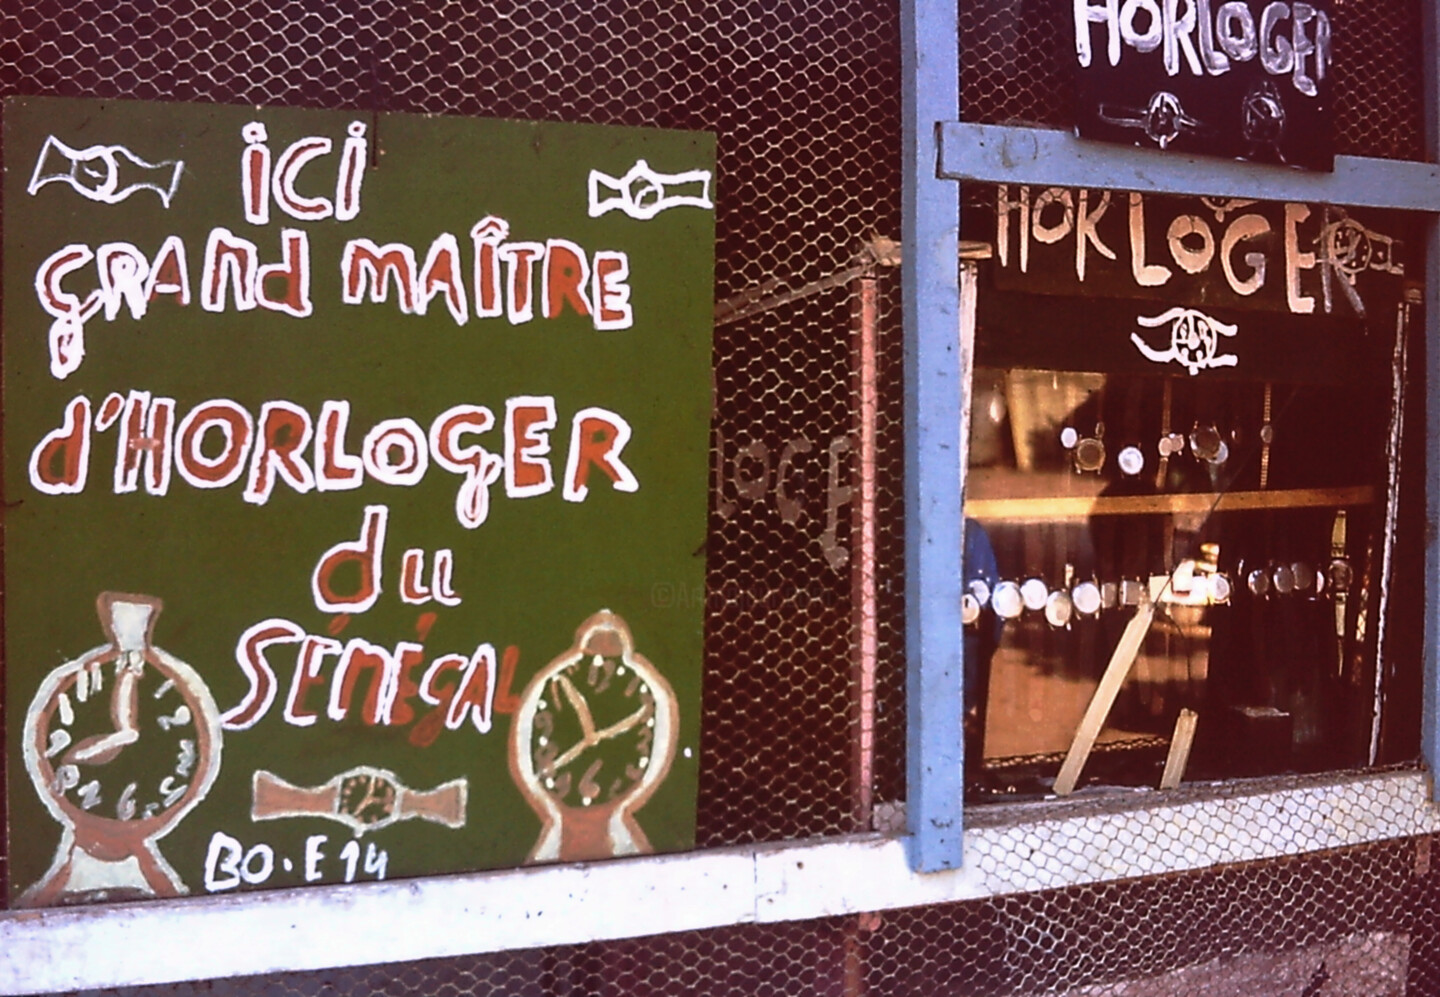 ici
GRANd MAÎTRE
d'HORLOGER
du
SÉNÉGAL
BO.E 14
HORLOGER
HORLOGER